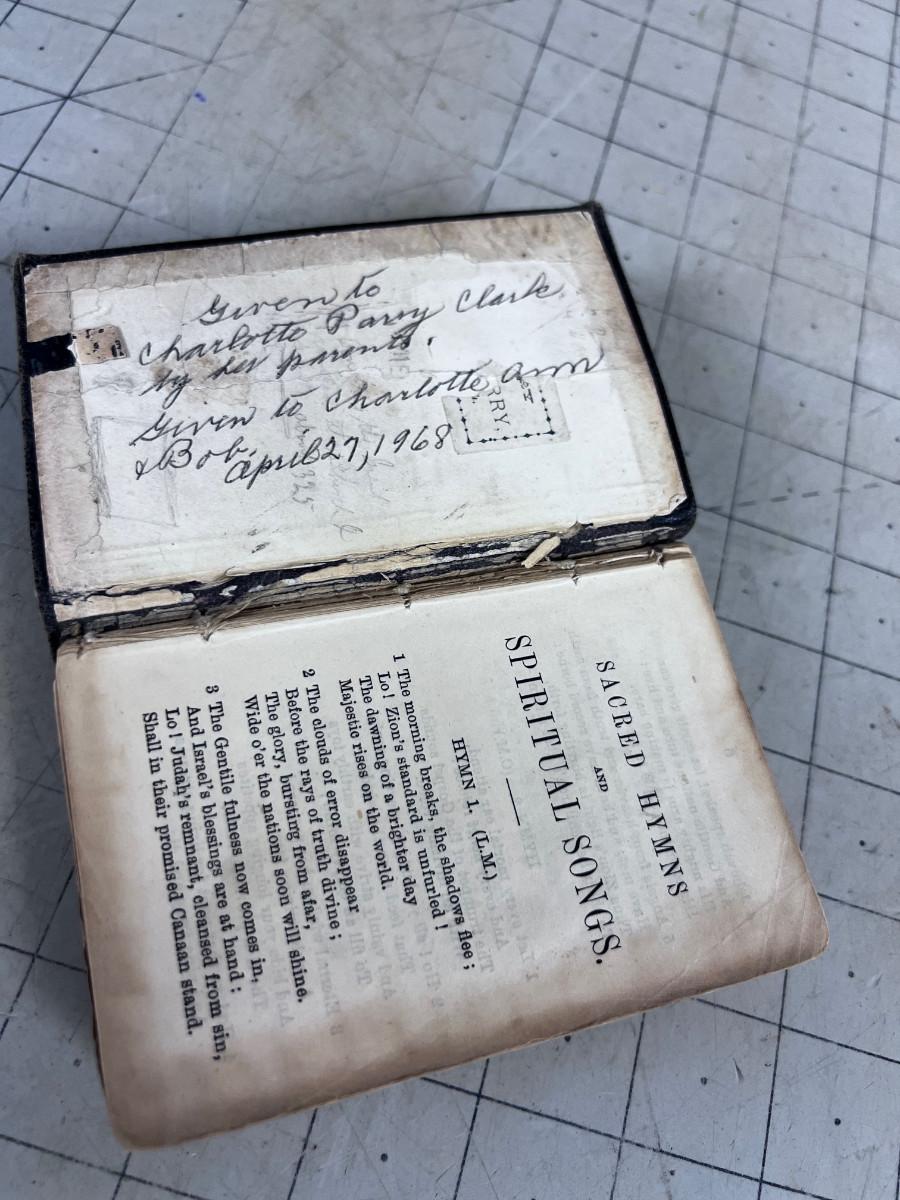 Given to
Charlotte Parry Clark
by her parents.
Given to Charlotte Ann
& Bob,
April 27, 1968
RRY.
SACRED HYMNS
AND
SPIRITUAL SONGS.
HYMN 1. (L.M.)
1 The morning breaks, the shadows flee;
Lo! Zion's standard is unfurled!
The dawning of a brighter day
Majestic rises on the world.
2 The clouds of error disappear
Before the rays of truth divine;
The glory, bursting from afar,
Wide o'er the nations soon will shine.
3 The Gentile fulness now comes in,
And Israel's blessings are at hand:
Lo! Judah's remnant, cleansed from sin,
Shall in their promised Canaan stand.